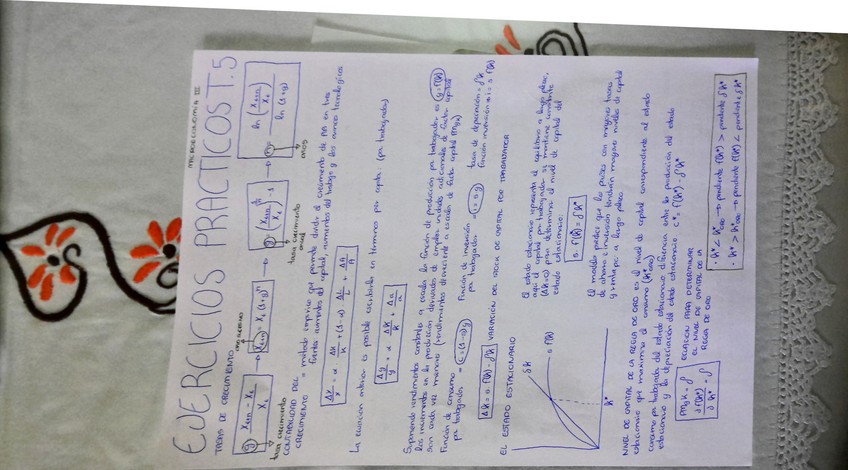 MICROECONOMIA III
EJERCICIOS PRACTICOS T.5
TASAS DE CRECIMIENTO
g = (Xt+1 - Xt) / Xt → Xt+n = Xt (1+g)^n → g = (Xt+n / Xt)^(1/n) - 1 → n = ln (Xt+n / Xt) / ln (1+g)
tasa crecimiento
tasa crecimiento anual
años
CONTABILIDAD DEL CRECIMIENTO = método empírico que permite dividir el crecimiento de en tres
fuentes: aumentos del capital, aumentos del trabajo y los avances tecnológicos
ΔY/Y = α ΔK/K + (1-α) ΔL/L + ΔA/A
La ecuacion anterior es posible escribirla en terminos per capita (por trabajador)
Δy/y = α Δk/k + Δa/a
Suponiendo rendimientos constantes a escala la función de producción por trabajador es y = f(k)
los incrementos en la producción derivados de emplear unidades adicionales de factor capital
son cada vez menores (rendimientos decrecientes a escala de factor capital PMgk)
Función de consumo por trabajador = c = (1-s)y
Función de inversión por trabajador i = s·y
tasa de depreciación = δk
función inversión = i = s·f(k)
Δk = s·f(k) - δk VARIACIÓN DEL STOCK DE CAPITAL POR TRABAJADOR
EL ESTADO ESTACIONARIO
δk
s·f(k)
k*
El estado estacionario representa el equilibrio a largo plazo,
aquí el capital por trabajador se mantiene constante
(Δk=0) para determinar el nivel de capital del
estado estacionario:
s·f(k) = δk*
El modelo predice que los países con mayores tasas
de ahorro e inversión tendrán mayores niveles de capital
y renta pc a largo plazo
NIVEL DE CAPITAL DE LA REGLA DE ORO es el nivel de capital correspondiente al estado
estacionario que maximiza el consumo (k*oro)
consumo por trabajador del estado estacionario: diferencia entre la producción del estado
estacionario y la depreciación del estado estacionario: c* = f(k*) - δk*
PMgk = δ
∂f(k*)/∂k* = δ
ECUACION PARA DETERMINAR
EL NIVEL DE CAPITAL DE LA
REGLA DE ORO
· k* < k*oro → pendiente f(k*) > pendiente δk*
· k* > k*oro → pendiente f(k*) < pendiente δk*